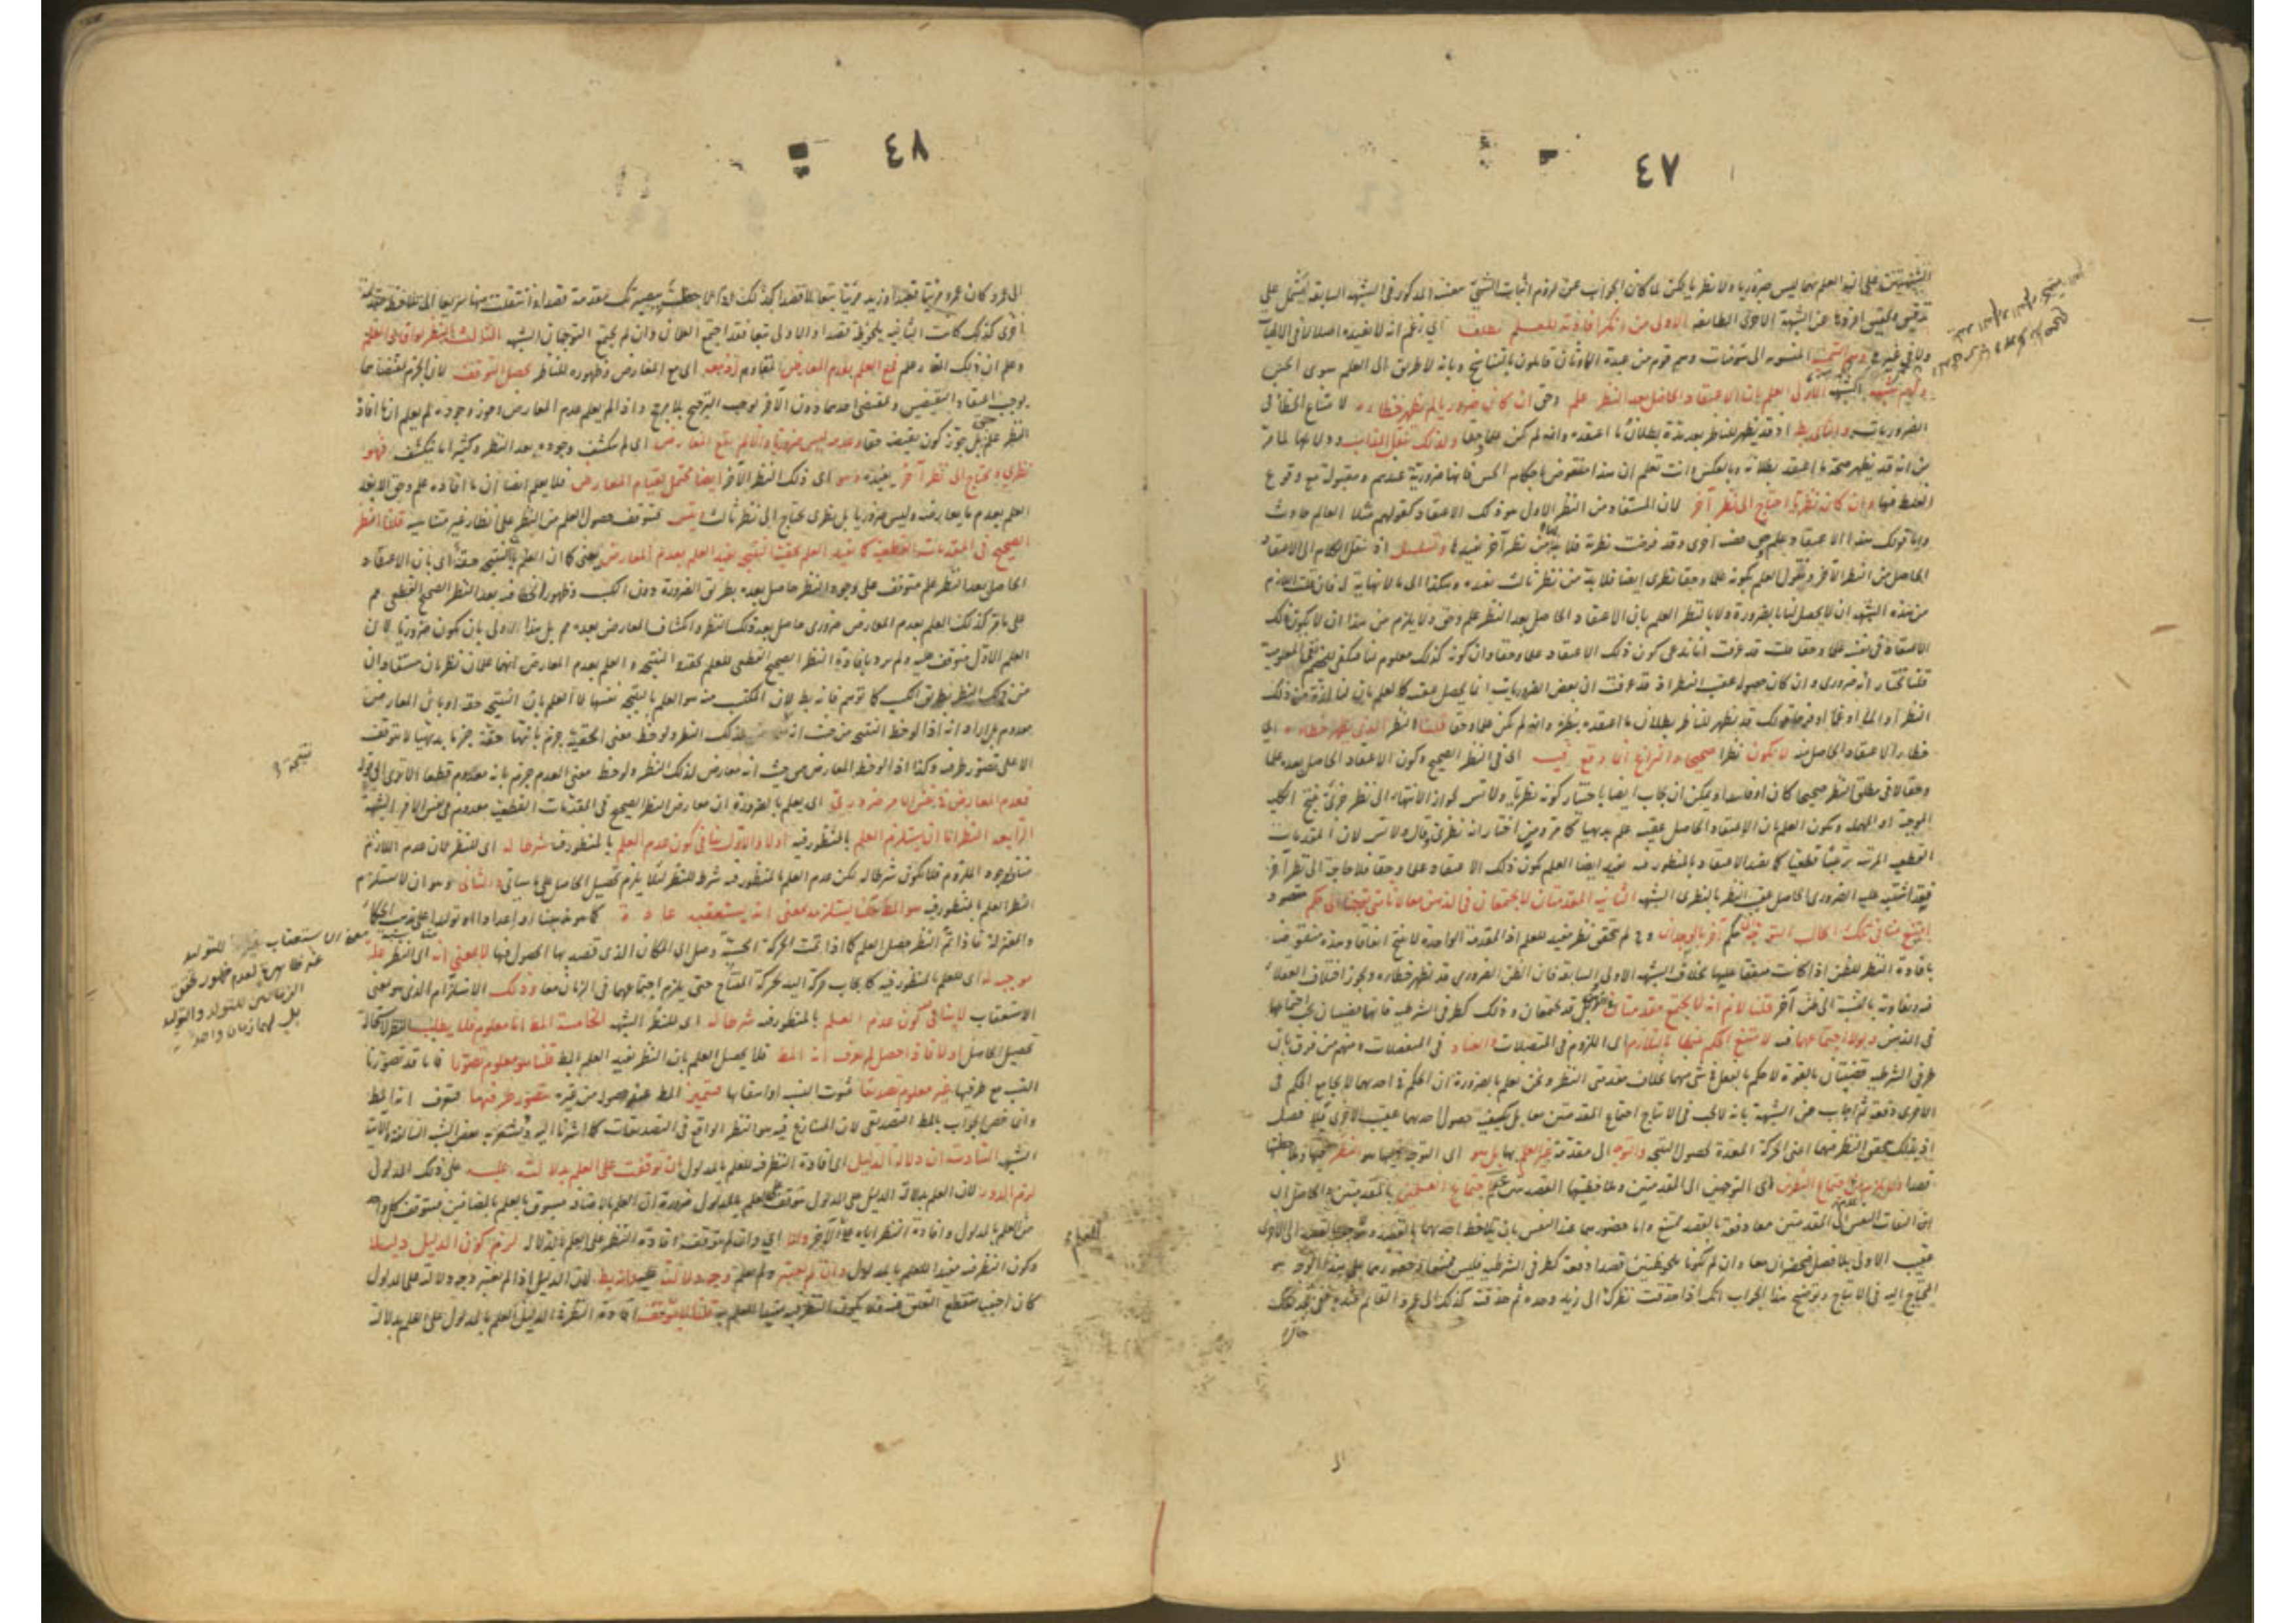 ٤٧
الشبهتين على ان العلم بهما ليس ضروريا ولا نظريا لكن لما كان الجواب عن لزوم اثبات الشئ بنفسه المذكور فى الشبهة السابقة يشتمل على
تدقيق وتحقيق افردها عن الشبهة الاخرى الطائفة الاولى من انكر افادته للعلم مطلقا اى زعم انه لا يفيده اصلا لا فى الالهيات
ولا فى غيرها وهم السمنية المنسوبة الى سومنات وهم قوم من عبدة الاوثان قائلون بالتناسخ وبانه لا طريق الى العلم سوى الحس
ولهم شبه الشبهة الاولى العلم بان الاعتقاد الحاصل بعد النظر علم وحق ان كان ضروريا لم يظهر خطاؤه لامتناع الخطأ فى
الضروريات والتالى بط اذ قد يظهر للناظر بعد مدة بطلان ما اعتقده وانه لم يكن علما وحقا ولذلك تنقل المذاهب ودلائلها لما مر
من انه قد يظهر صحة ما اعتقد بطلانه وبالعكس وانت تعلم ان هذا منقوض باحكام الحس فانها ضرورية عندهم ومقبولة مع وقوع
الغلط فيها وان كان نظريا احتاج الى نظر آخر لان المستفاد من النظر الاول هو ذلك الاعتقاد كقولهم مثلا العالم حادث
واما قولك هذا الاعتقاد علم وحق فقضية اخرى وقد فرضت نظرية فلا بد من نظر آخر يفيدها وتسلسل اذ ننقل الكلام الى الاعتقاد
الحاصل من النظر الآخر ونقول العلم بكونه علما وحقا نظرى ايضا فلا بد من نظر ثالث يفيده وهكذا الى ما لا نهاية له فان قلت اللازم
من هذه الشبهة ان لا يحصل لنا لا بالضرورة ولا بالنظر العلم بان الاعتقاد الحاصل بعد النظر علم وحق ولا يلزم من هذا ان لا يكون ذلك
الاعتقاد فى نفسه علما وحقا قلت قد عرفت انا ندعى كون ذلك الاعتقاد علما وحقا وان كونه كذلك معلوم لنا فيكفى للخصم نفى المعلومية
قلنا نختار انه ضرورى وان كان حصوله عقيب النظر اذ قد عرفت ان بعض الضروريات انما يحصل عقيبه كالعلم بان لنا لذة من ذلك
النظر او الما او غما او فرحا قولك قد يظهر للناظر بطلان ما اعتقده بنظره وانه لم يكن علما وحقا قلنا النظر الذى يظهر خطاؤه اى
خطاء الاعتقاد الحاصل منه لا يكون نظرا صحيحا والنزاع انما وقع فيه اى فى النظر الصحيح وكون الاعتقاد الحاصل بعده علما
وحقا لا فى مطلق النظر صحيحا كان او فاسدا ويمكن ان يجاب ايضا باختيار كونه نظريا ولا تس لجواز الانتهاء الى نظر جزئى ينتج الكلية
الموجبة او المهملة ويكون العلم بان الاعتقاد الحاصل عقيبه علم بديهيا كما مر ومن اختار انه نظرى قال ولا تس لان المقدمات
القطعية المرتبة ترتيبا قطعيا كما يفيد الاعتقاد بالمنظور فيه يفيد ايضا العلم بكون ذلك الاعتقاد علما وحقا فلا حاجة الى نظر آخر
فقد اشتبه عليه الضرورى الحاصل عقيب النظر بالنظرى الشبهة الثانية المقدمتان لا تجتمعان فى الذهن معا لانا متى توجهنا الى حكم مقصود
امتنع منا فى تلك الحالة التوجه الى حكم آخر بالوجدان و ح لم يتحقق نظر مفيد للعلم اذ المقدمة الواحدة لا تنتج اتفاقا وهذه منقوضة
بافادة النظر للظن اذا كانت متفقا عليها بخلاف الشبهة الاولى السابقة فان الظن الضرورى قد يظهر خطاؤه ويجوز اختلاف العقلاء
فيه وتفاوته بالنسبة الى ظن آخر قلنا لا نم انه لا تجتمع مقدمتان فى الذهن بل قد تجتمعان وذلك كطرفى الشرطية فانهما قضيتان يجب اجتماعهما
فى الذهن ولولا اجتماعهما فيه لامتنع الحكم بينهما بالتلازم اى اللزوم فى المتصلات والعناد فى المنفصلات ومنهم من فرق بان
طرفى الشرطية قضيتان بالقوة لا حكم بالفعل فى شئ منهما بخلاف مقدمتى النظر ونحن نعلم بالضرورة ان الحكم فى احديهما لا يجامع الحكم فى
الاخرى دفعة ثم اجاب عن الشبهة بانه لا يجب فى الانتاج اجتماع المقدمتين معا بل يكفيه حصول احديهما عقيب الاخرى بلا فصل
اذ بذلك يتحقق النظر فيهما اعنى الحركة المعدة لحصول النتيجة والتوجه الى مقدمة غير العلم بها بل هو اى التوجه اليها هو النظر فيها وملاحظتها
قصدا ولا يلزم من عدم اجتماع النظرين اى التوجهين الى المقدمتين وملاحظتيهما القصديتين عدم اجتماع العلمين بالمقدمتين والحاصل ان
ان التفات النفس الى المقدمتين معا دفعة بالقصد ممتنع واما حضورهما عند النفس بان يلاحظ احديهما بالقصد ويتوجه بالقصد الى الاخرى
عقيب الاولى بلا فصل فتحضران معا وان لم تكونا ملحوظتين قصدا دفعة كطرفى الشرطية فليس ممتنعا وحضورهما على هذا الوجه هو
المحتاج اليه فى الانتاج وتوضيح هذا الجواب انك اذا حدقت نظرك الى زيد وحده ثم حدقت كذلك الى عمرو القائم عنده فحين
٤٨
الى عمرو كان عمرو مرئيا قصدا وزيد مرئيا تبعا لا قصدا كذلك اذا لاحظت ببصيرتك مقدمة قصدا وانتقلت منها سريعا الى ملاحظة مقدمة
اخرى كذلك كانت الثانية ملحوظة قصدا والاولى تبعا فقد اجتمع العلمان وان لم يجتمع التوجهان الشبهة الثالثة النظر لو افاد العلم
وعلم ان ذلك المفاد علم فمع العلم بعدم المعارض المقاوم اذ معه اى مع المعارض وظهوره للناظر يحصل التوقف لان الجزم بمقتضاهما
يوجب اعتقاد النقيضين وبمقتضى احدهما دون الآخر يوجب الترجيح بلا مرجح واذا لم يعلم عدم المعارض وجوز وجوده لم يعلم ان ما افاده
النظر علم بل جوز كون نقيضه حقا وعدمه ليس ضروريا والا لم يقع المعارض اى لم ينكشف وجوده بعد النظر وكثيرا ما ينكشف فهو
نظرى ويحتاج الى نظر آخر يفيده وهو اى ذلك النظر الآخر ايضا محتمل لقيام المعارض فلا يعلم ايضا ان ما افاده علم وحق الا بعد
العلم بعدم ما يعارضه وليس ضروريا بل نظرى يحتاج الى نظر ثالث ويتس فيتوقف حصول العلم من النظر على انظار غير متناهية قلنا النظر
الصحيح فى المقدمات القطعية كما يفيد العلم بحقية النتيجة يفيد العلم بعدم المعارض يعنى كما ان العلم بان النتيجة حقة اى بان الاعتقاد
الحاصل بعد النظر علم متوقف على وجود النظر حاصل بعده بطريق الضرورة دون الكسب وظهور الخطاء فيه بعد النظر الصحيح القطعى مم
على ما مر كذلك العلم بعدم المعارض ضرورى حاصل بعد ذلك النظر وانكشاف المعارض بعده مم بل هذا اولى بان يكون ضروريا لان
العلم الاول متوقف عليه ولم يرد بافادة النظر الصحيح القطعى للعلم بحقية النتيجة والعلم بعدم المعارض انهما علمان نظريان مستفادان
من ذلك النظر بطريق الكسب كما توهم فانه بط لان المكتسب منه هو العلم بالنتيجة نفسها لا العلم بان النتيجة حقة او بان المعارض
معدوم بل اراد انه اذا لوحظ النتيجة من حيث انها لذلك النظر ولوحظ معنى الحقية جزم بانها حقة جزما بديهيا لا يتوقف
الا على تصور طرفيه وكذا اذا لوحظ المعارض من حيث انه معارض لذلك النظر ولوحظ معنى العدم جزم بانه معدوم قطعا
فعدم المعارض فى نفس الامر ضرورى اى يعلم بالضرورة ان معارض النظر الصحيح فى المقدمات القطعية معدوم فى نفس الامر الشبهة
الرابعة النظر اما ان يستلزم العلم بالمنظور فيه او لا والاول ينافى كون عدم العلم بالمنظور فيه شرطا له اى للنظر لان عدم اللازم
مناف لوجود الملزوم فلا يكون شرطا له لكن عدم العلم بالمنظور فيه شرط للنظر لئلا يلزم تحصيل الحاصل على ما سياتى والثانى وهو ان لا يستلزم
النظر العلم بالمنظور فيه هو المط قلنا يستلزمه بمعنى انه يستعقبه عادة كما هو مذهبنا او اعدادا او توليدا على مذهب الحكماء
والمعتزلة فاذا تم النظر حصل العلم كما اذا تمت الحركة الحسية وصل الى المكان الذى قصد بها الحصول فيها لا بمعنى انه اى النظر علة
موجبة له اى للعلم بالمنظور فيه كايجاب حركة اليد لحركة المفتاح حتى يلزم اجتماعهما فى الزمان معا وذلك الاستلزام الذى هو بمعنى
الاستعقاب لا ينافى كون عدم العلم بالمنظور فيه شرطا له اى للنظر الشبهة الخامسة المط اما معلوم فلا يطلب بالنظر لاستحالة
تحصيل الحاصل او لا فاذا حصل لم يعرف انه المط فلا يحصل العلم بان النظر يفيد العلم بالمط قلنا هو معلوم تصورا فانا قد تصورنا
النسبة مع طرفيها غير معلوم تصديقا ثبوت النسبة او انتفائها فيتميز المط عند حصوله من غيره بتصور طرفيها فيعرف انه المط
وانما خص الجواب بالمط التصديقى لان المتنازع فيه هو النظر الواقع فى التصديقات كما اشرنا اليه ويشعر به بعض الشبه السالفة والآتية
الشبهة السادسة ان دلالة الدليل اى افادة النظر فيه للعلم بالمدلول ان توقفت على العلم بدلالته عليه على ذلك المدلول
لزم الدور لان العلم بدلالة الدليل على المدلول متوقف على العلم بالمدلول ضرورة ان العلم بالاضافة مسبوق بالعلم بالمضافين فيتوقف كل واحد
من العلم بالمدلول وافادة النظر اياه على الآخر والا اى وان لم يتوقف افادة النظر على العلم بالدلالة لزم كون الدليل دليلا
وكون النظر فيه مفيدا للعلم بالمدلول وان لم يعتبر ولم يعلم وجه دلالته عليه وانه بط لان الدليل اذا لم يعتبر وجه دلالته على المدلول
كان اجنبيا منقطع التعلق عنه فلا يكون النظر فيه مفيدا للعلم به قلنا لا يتوقف افادة النظر فى الدليل العلم بالمدلول على العلم بدلالة
نتيجة
معنى الاستعقاب للتوليد
غير ظاهر لعدم ظهور تحقق
الزمانين للتولد والتوليد
بل لهما زمان واحد